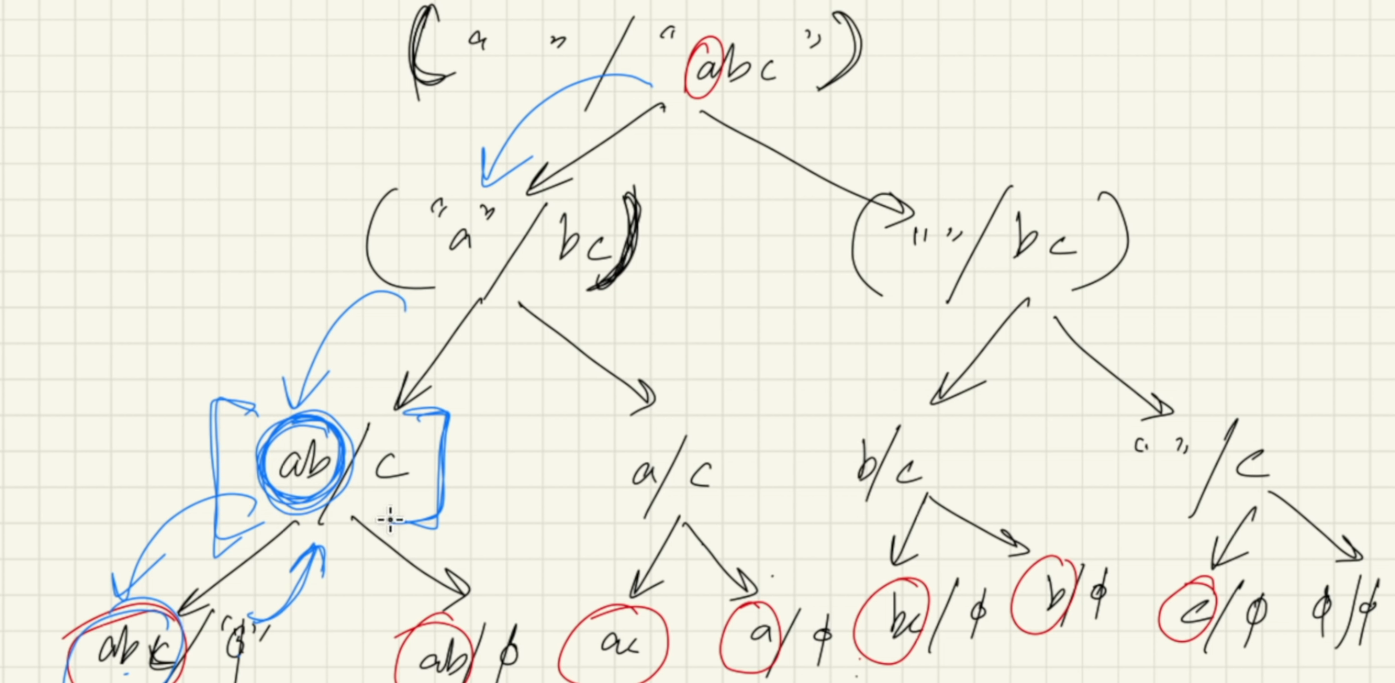 ( " " / " abc " )
( "a" / bc ) ( " " / bc )
ab / c a / c b / c " " / c
abc / "ϕ" ab / ϕ ac a / ϕ bc / ϕ b / ϕ c / ϕ ϕ / ϕ